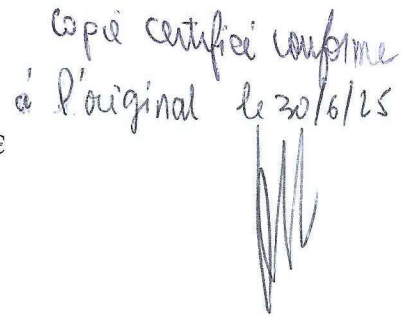 Copie certifiée conforme
à l'original le 30/6/25
E